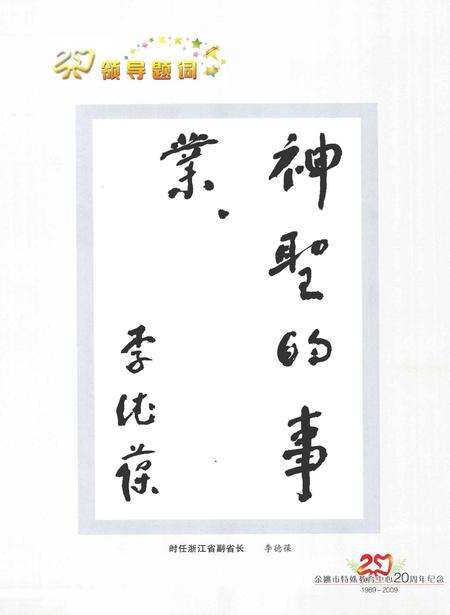 20 领导题词
神聖的事
業.
李德葆
时任浙江省副省长 李德葆
20
余姚市特殊教育中心20周年纪念
1989-2009